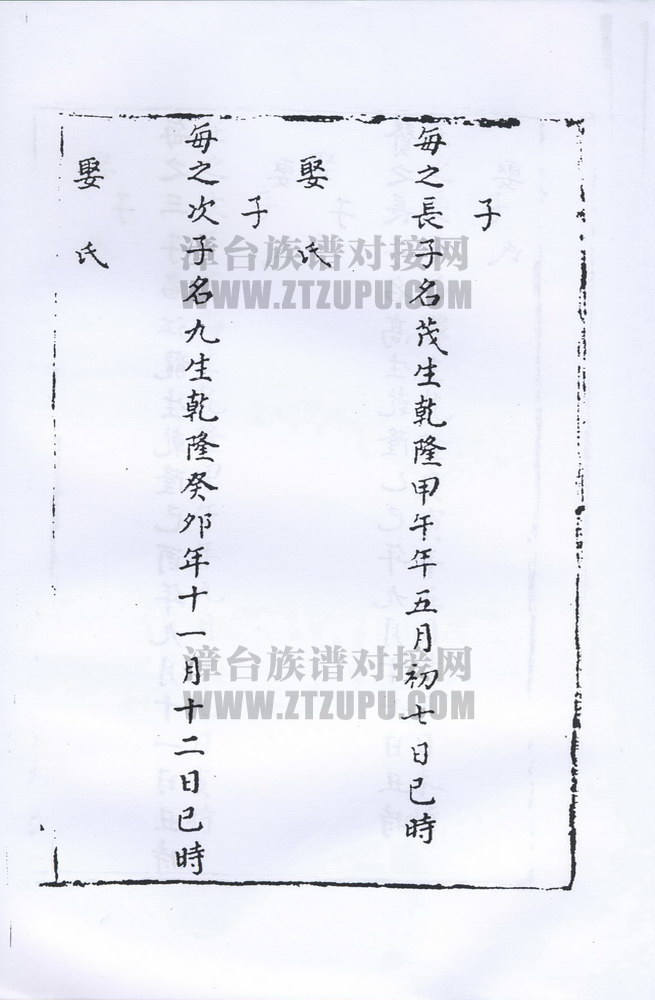 子
每之長子名茂生乾隆甲午年五月初七日巳時
娶 氏
子
每之次子名九生乾隆癸卯年十一月十二日巳時
娶 氏
漳台族谱对接网
WWW.ZTZUPU.COM
漳台族谱对接网
WWW.ZTZUPU.COM